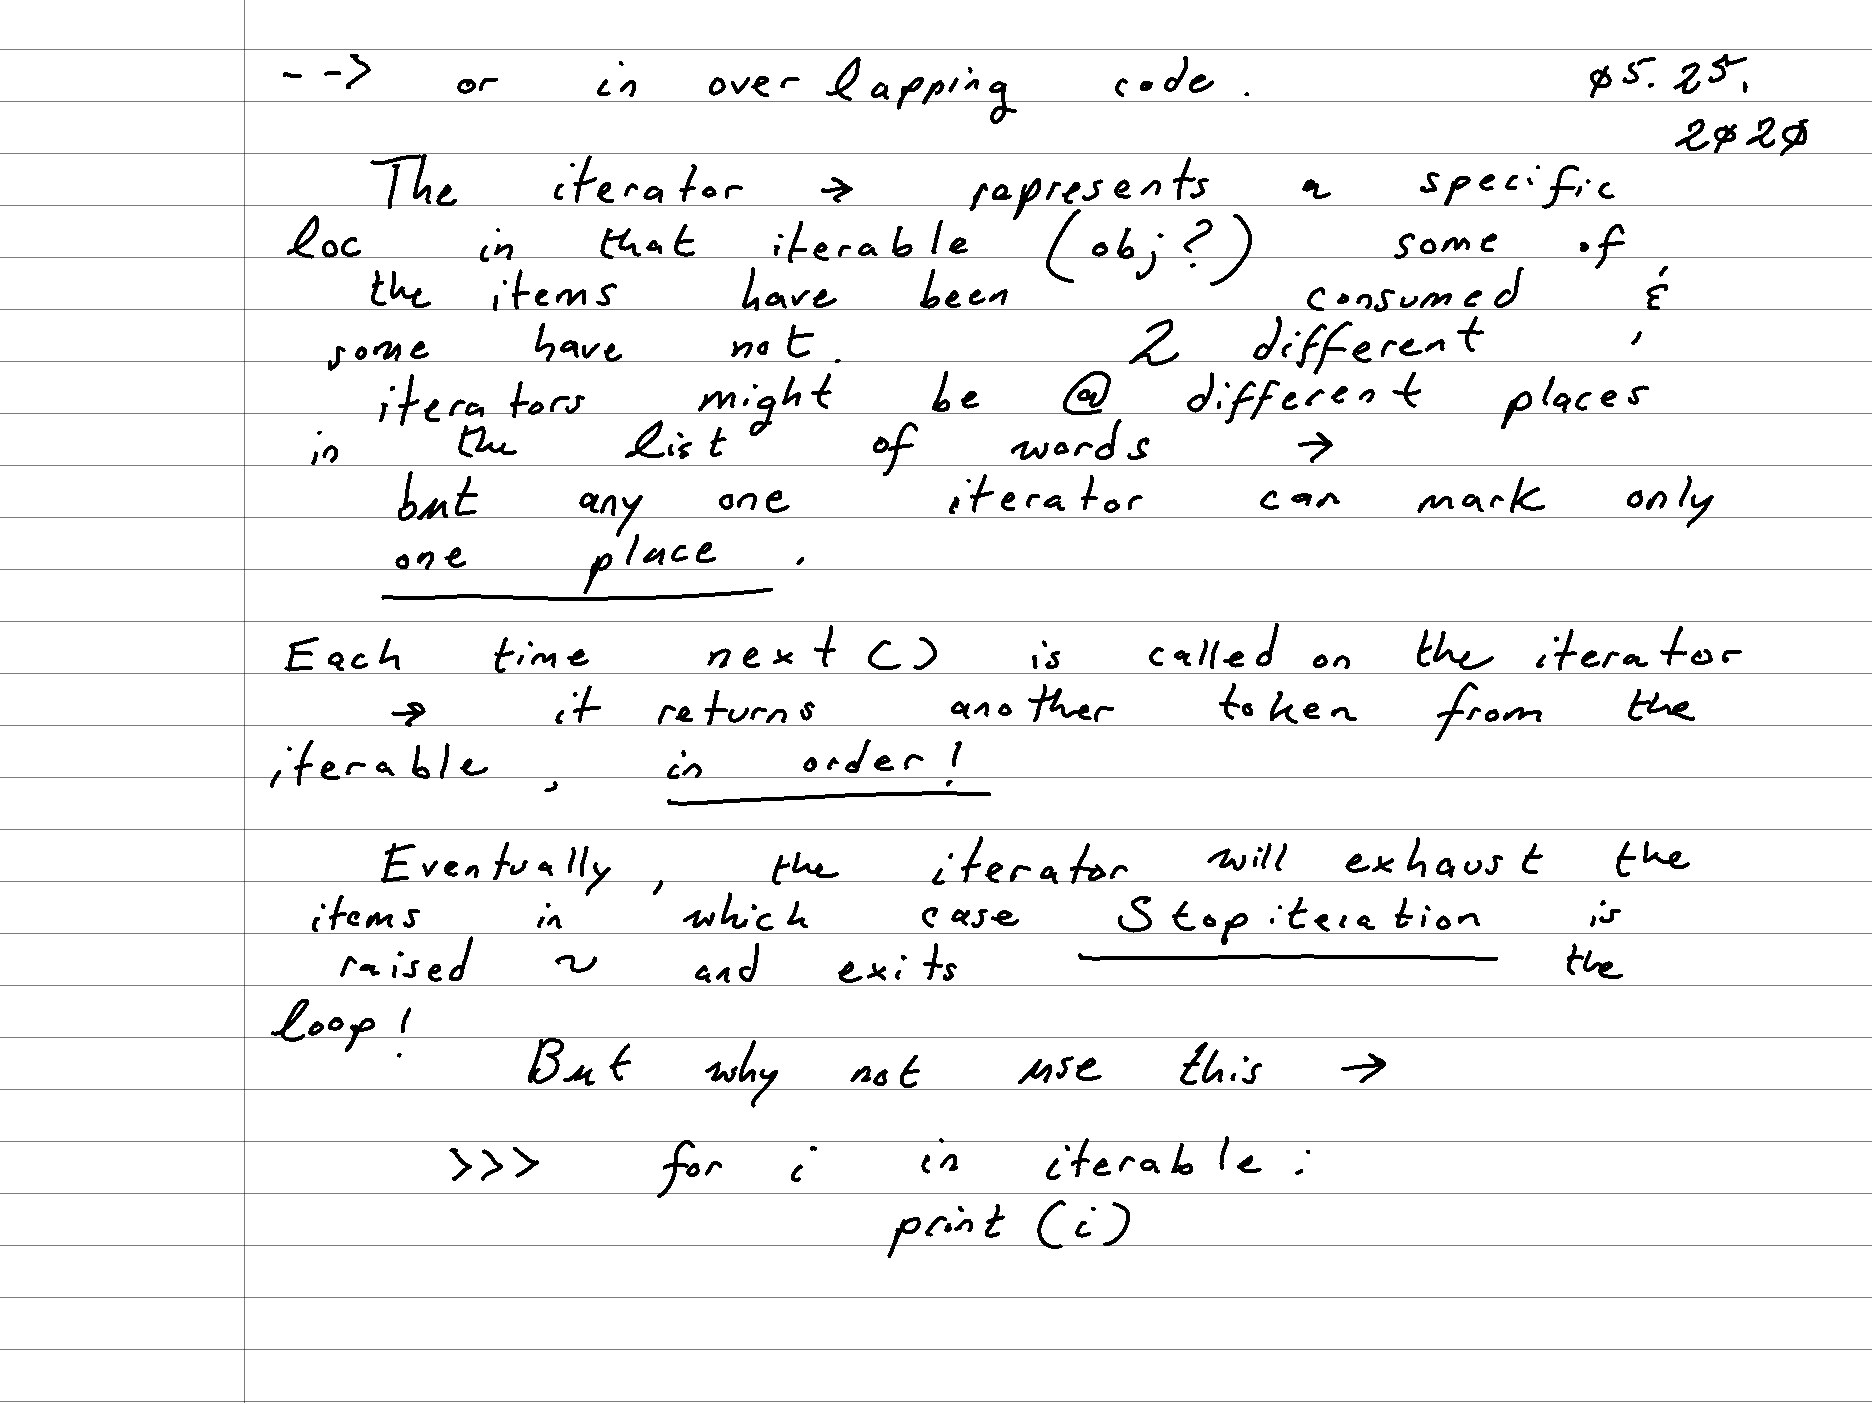 --> or in overlapping code. 05.25.
2020
The iterator → represents a specific
loc in that iterable (obj?) some of
the items have been consumed &
some have not. 2 different
iterators might be @ different places
in the list of words →
but any one iterator can mark only
one place.
Each time next() is called on the iterator
→ it returns another token from the
iterable, in order!
Eventually, the iterator will exhaust the
items in which case Stopiteration is
raised ~ and exits the
loop!
But why not use this →
>>> for i in iterable:
print(i)